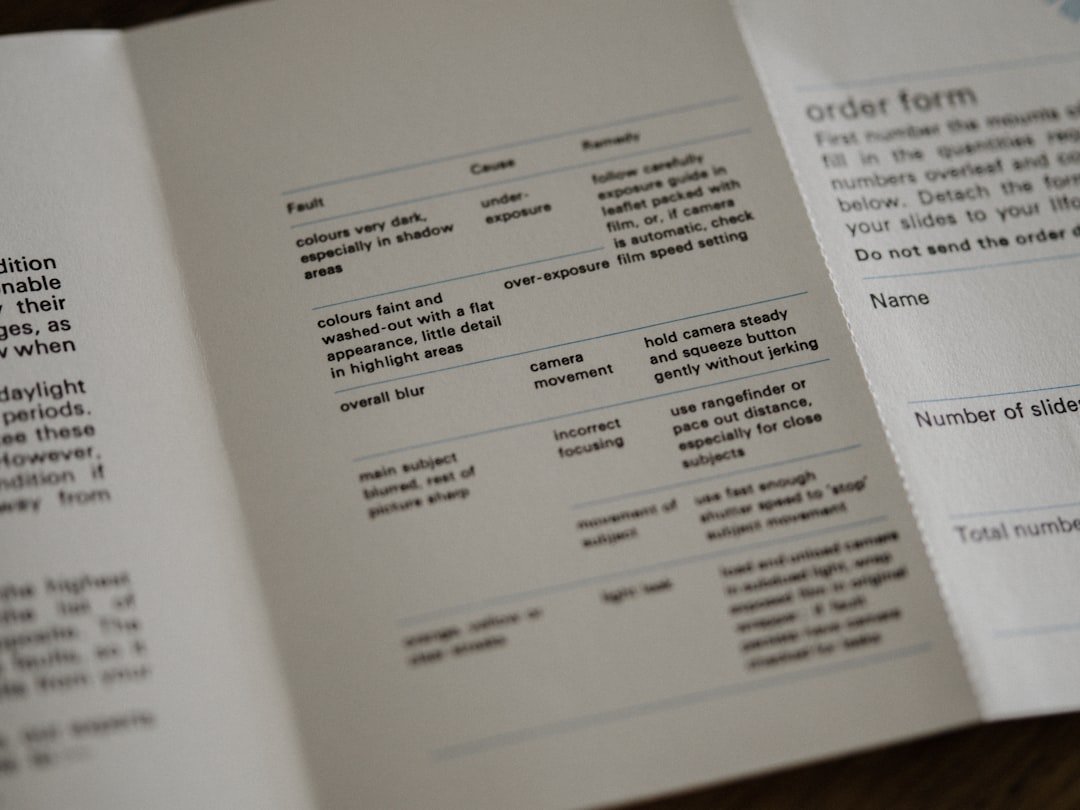 dition
onable
y their
ges, as
w when
daylight
periods.
ee these
However,
ndition if
away from
the highest
the list of
opposite. The
faults, so it
from your
our experts
Fault Cause Remedy
colours very dark,
especially in shadow
areas
under-
exposure
follow carefully
exposure guide in
leaflet packed with
film, or, if camera
is automatic, check
film speed setting
colours faint and
washed-out with a flat
appearance, little detail
in highlight areas
over-exposure
overall blur
camera
movement
hold camera steady
and squeeze button
gently without jerking
main subject
blurred, rest of
picture sharp
incorrect
focusing
use rangefinder or
pace out distance,
especially for close
subjects
movement of
subject
use fast enough
shutter speed to 'stop'
subject movement
orange, yellow or
streaks
light leak
load and unload camera
in subdued light, wrap
exposed film in original
if fault
camera
checked for
order form
First number the mounts
fill in the quantities
numbers overleaf and
below. Detach the form
your slides to your Ilfo
Do not send the order
Name
Number of slides
Total numbe